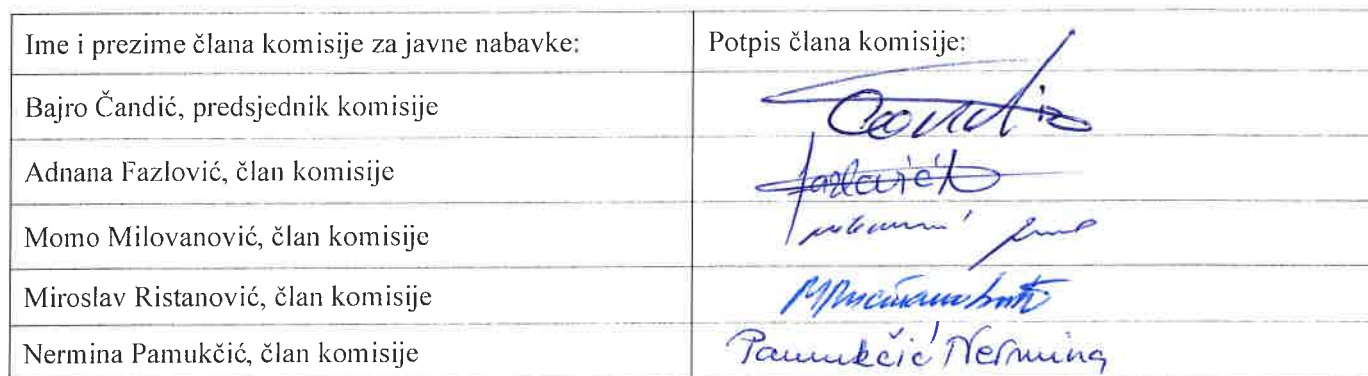 Ime i prezime člana komisije za javne nabavke: Potpis člana komisije:
Bajro Čandić, predsjednik komisije
Adnana Fazlović, član komisije Fazlović A
Momo Milovanović, član komisije
Miroslav Ristanović, član komisije
Nermina Pamukčić, član komisije Pamukčić Nermina